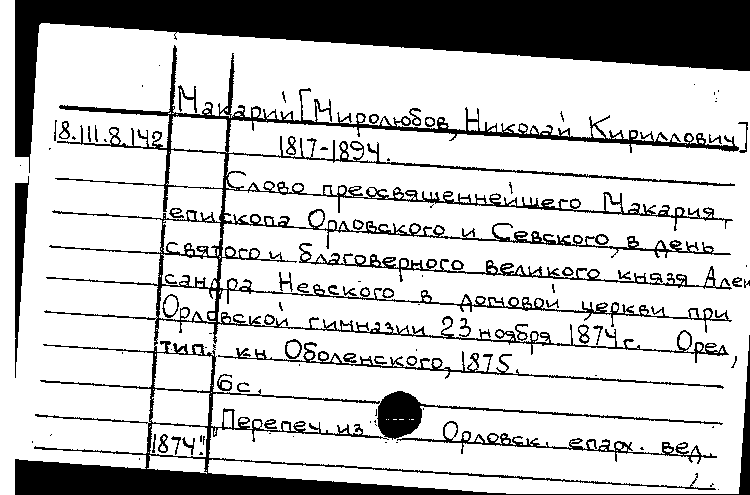 Макарий [Миролюбов, Николай Кириллович]
18.III.8.142
1817-1894.
Слово преосвященнейшего Макария,
епископа Орловского и Севского, в день
святого и благоверного великого князя Алек
сандра Невского в домовой церкви при
Орловской гимназии 23 ноября 1874 г. Орел,
тип. кн. Оболенского, 1875.
6 с.
"Перепеч. из Орловск. епарх. вед.
1874."